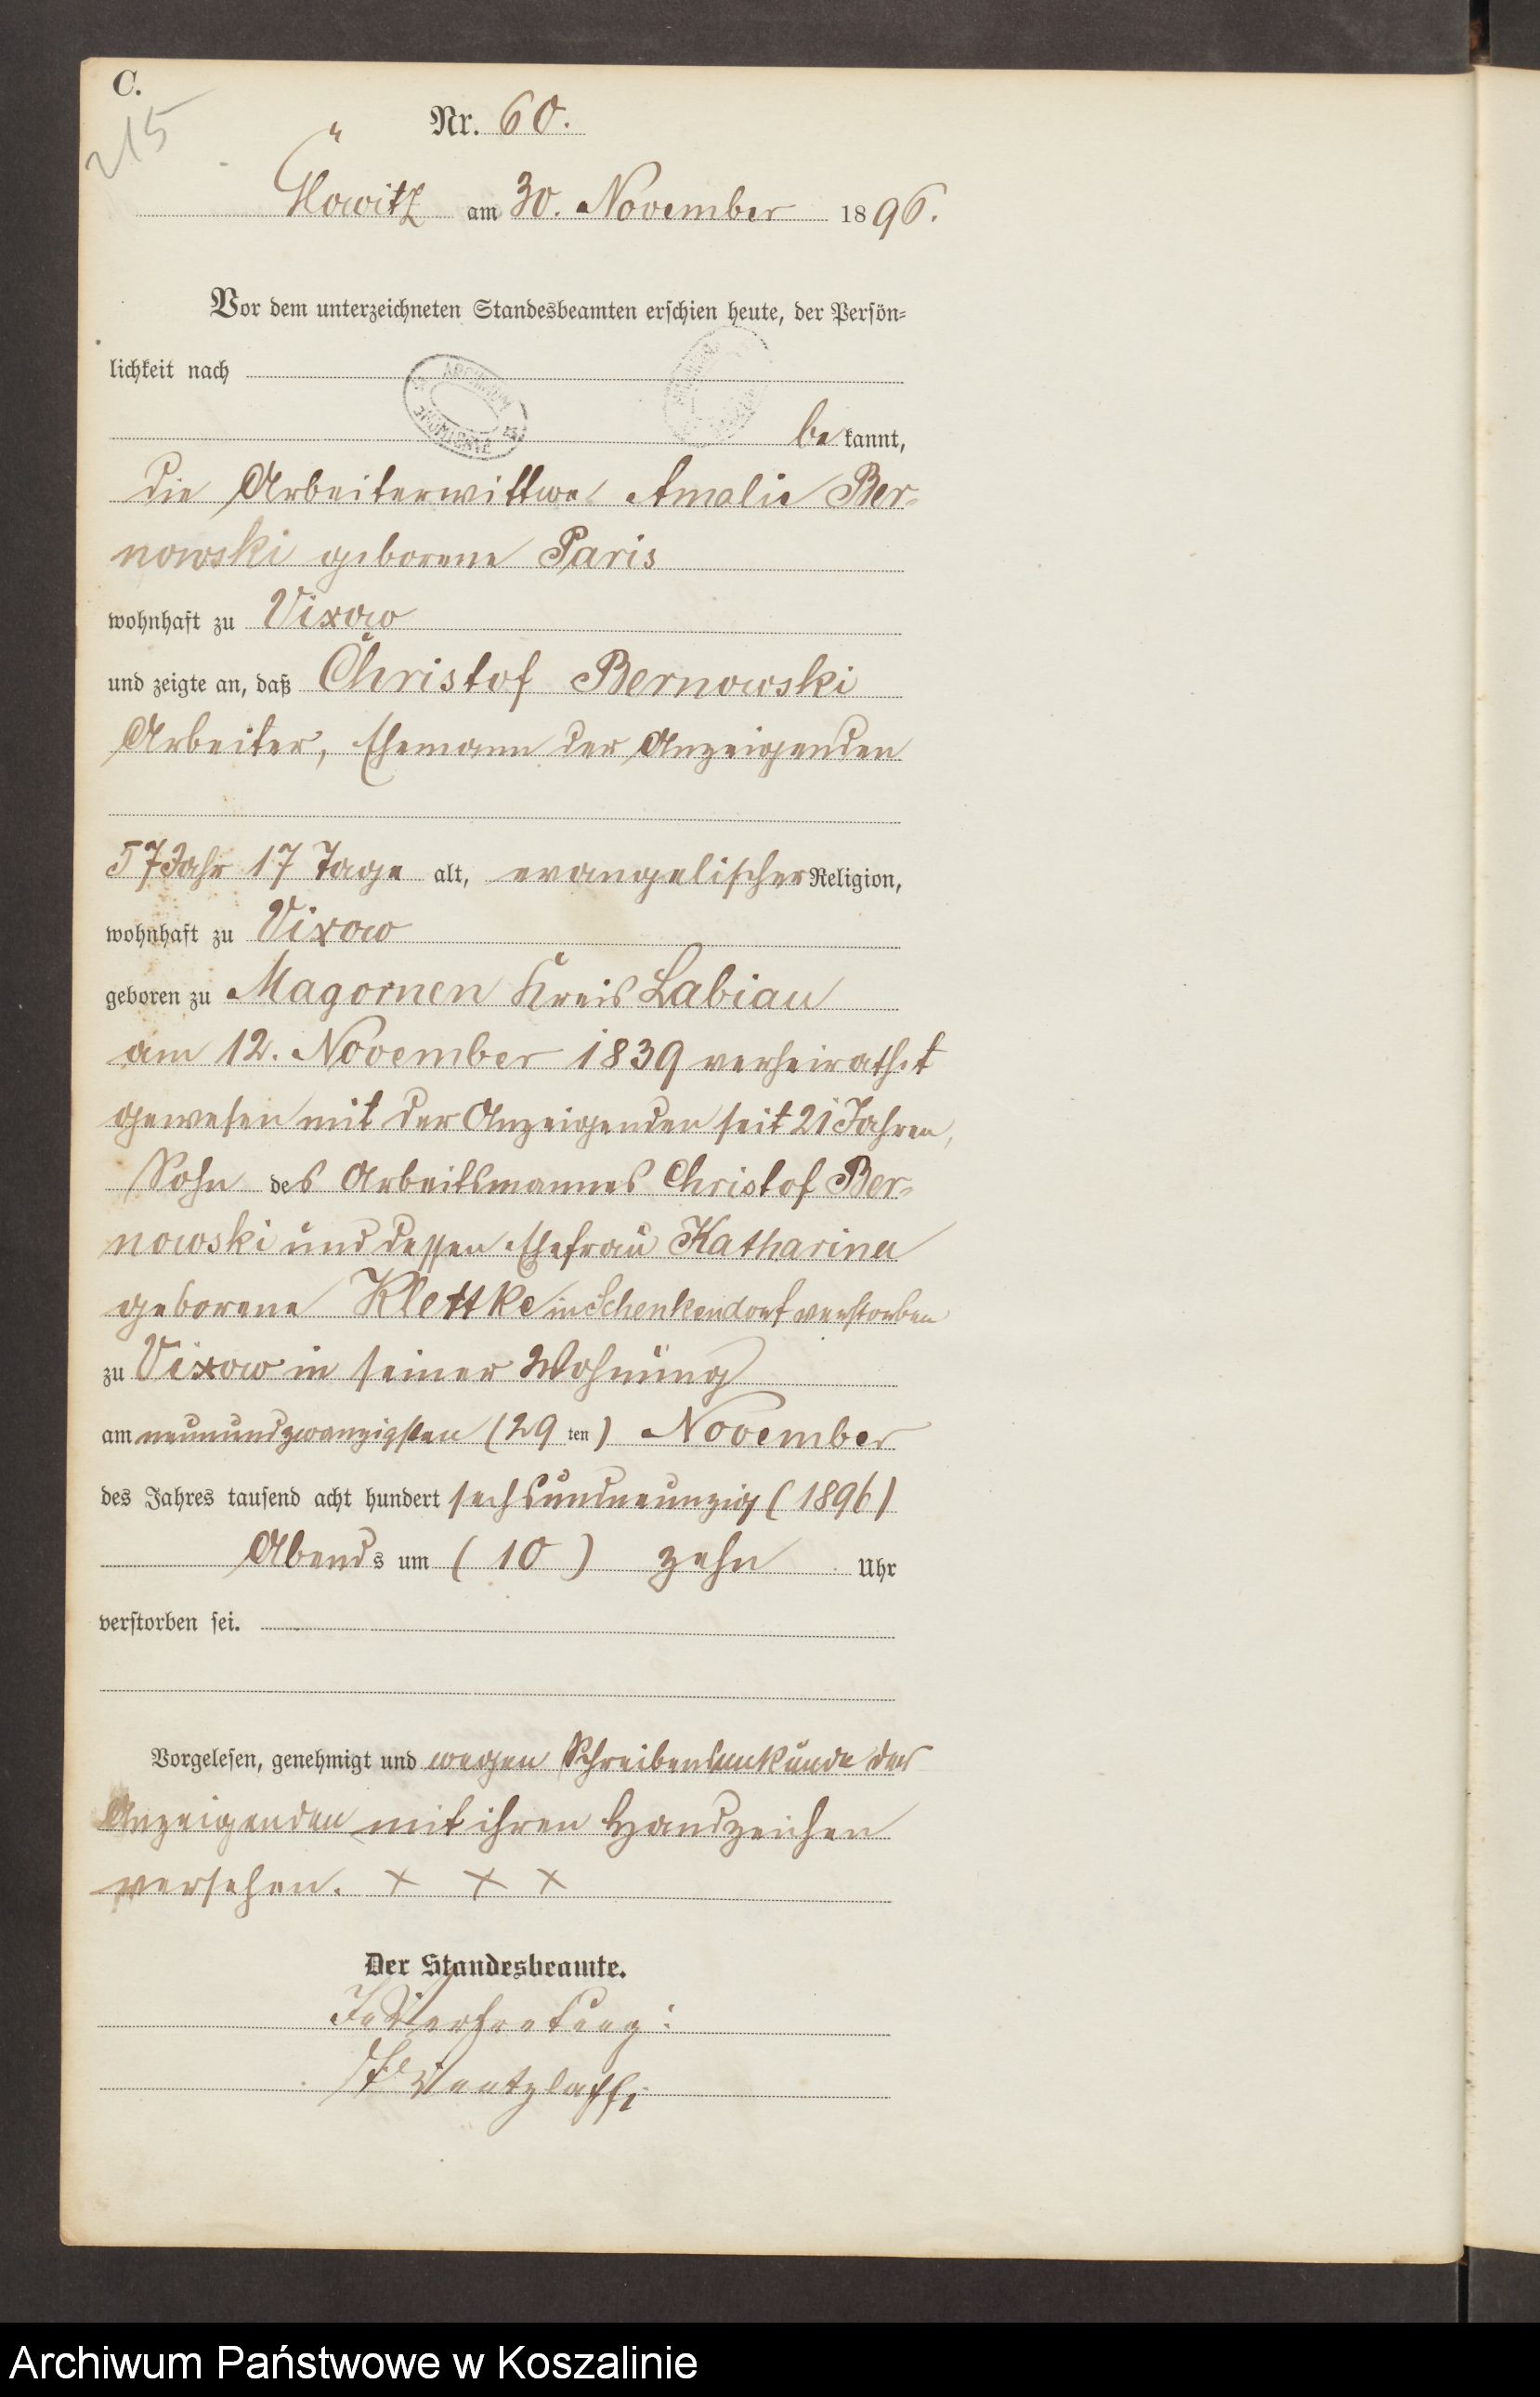 C.
215
Nr. 60.
Glowitz am 30. November 1896.
Vor dem unterzeichneten Standesbeamten erschien heute, der Persön-
lichkeit nach
be kannt,
die Arbeiterwittwe Amalie Ber-
nowski geborene Paris
wohnhaft zu Vixow
und zeigte an, daß Christof Bernowski
Arbeiter, Ehemann der Anzeigenden
57 Jahr 17 Tage alt, evangelischer Religion,
wohnhaft zu Vixow
geboren zu Magornen Kreis Labiau
am 12. November 1839 verheirathet
gewesen mit der Anzeigenden seit 21 Jahren,
Sohn des Arbeitsmannes Christof Ber-
nowski und dessen Ehefrau Katharina
geborene Klettke in Schenkendorf verstorben
zu Vixow in seiner Wohnung
am neunundzwanzigsten (29 ten) November
des Jahres tausend acht hundert sechsundneunzig (1896)
Abends um (10) zehn Uhr
verstorben sei.
Vorgelesen, genehmigt und wegen Schreibensunkunde der
Anzeigenden mit ihren Handzeichen
versehen. + + +
Der Standesbeamte.
In Vertretung:
Wentzlaff
Archiwum Państwowe w Koszalinie